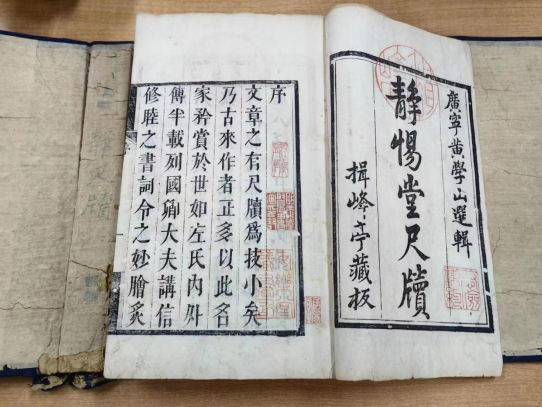 廣寧黄學山選輯
静惕堂尺牘
揖峰亭藏板
序
文章之有尺牘為技小矣
乃古來作者正多以此名
家矜賞於世如左氏內外
傳半載列國卿大夫講信
修睦之書詞令之妙膾炙